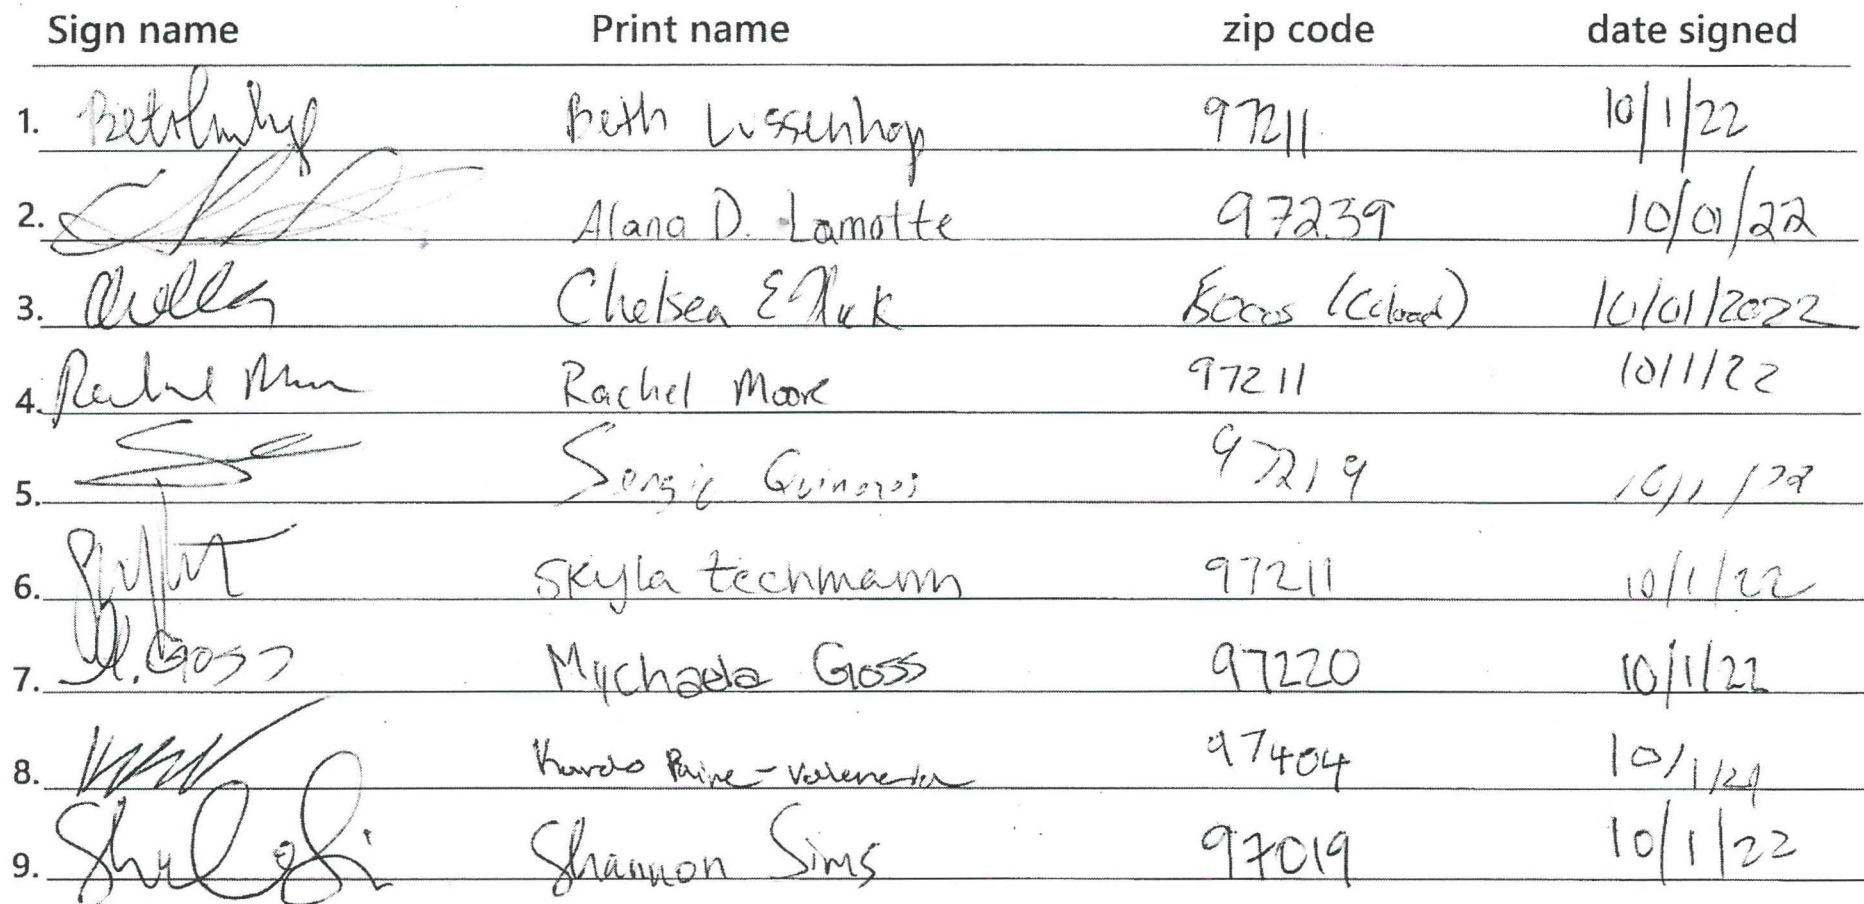 Sign name Print name zip code date signed
1. Beth Lussenhop 97211 10/1/22
2. Alana D. Lamotte 97239 10/01/22
3. Chelsea 10/01/2022
4. Rachel Moore 97211 10/1/22
5. 97219 10/1/22
6. Skyla techmann 97211 10/1/22
7. M. Goss Mychaela Goss 97220 10/1/22
8. 97404
9. Shannon Sims 97019 10/1/22